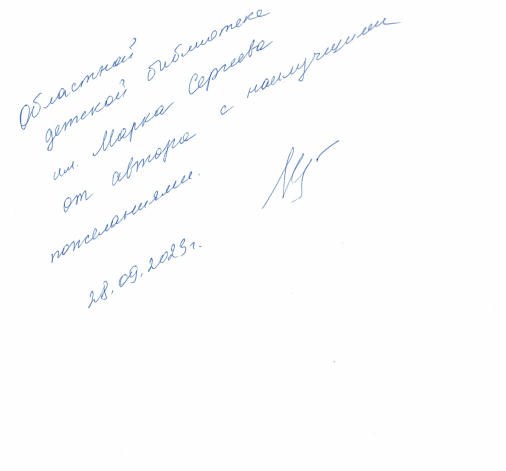 Областной
детской библиотеке
им. Марка Сергеева
от автора с наилучшими
пожеланиями.
28.09.2023г.